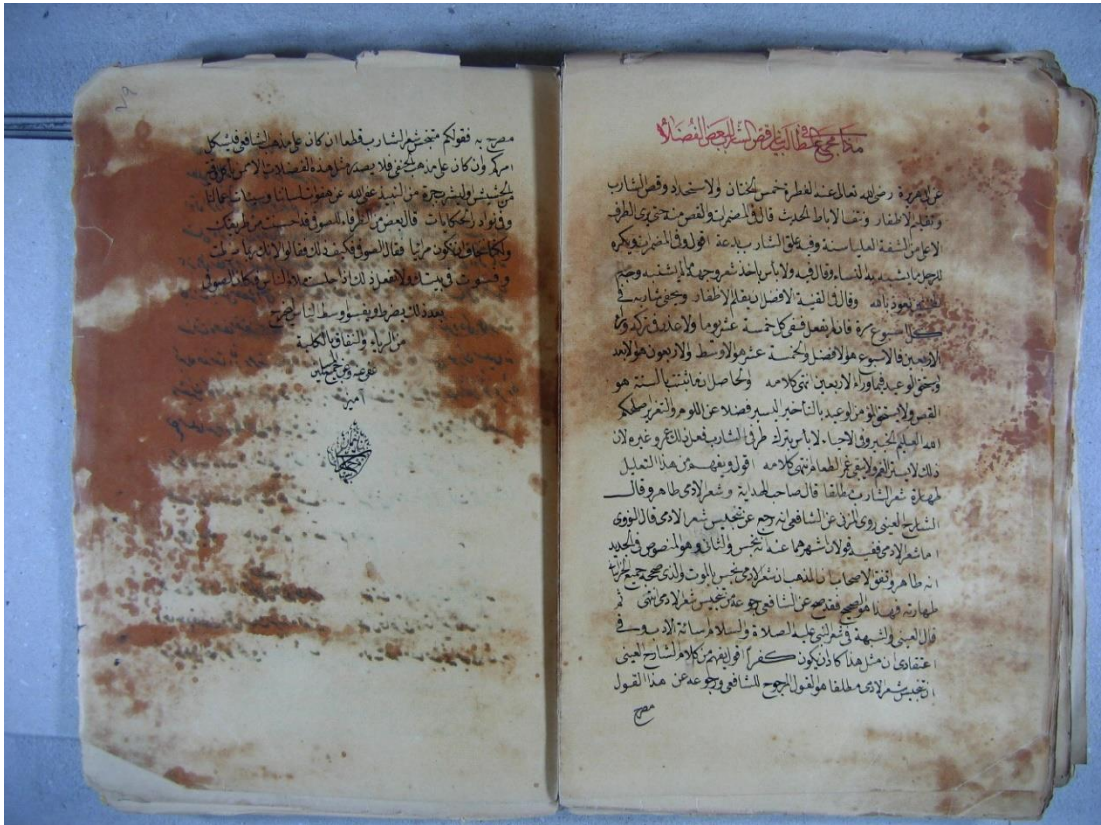 هذا مجمع المطالب في قص الشارب لبعض الفضلاء
عن ابي هريرة رضي الله تعالى عنه الفطرة خمس الختان والاستحداد وقص الشارب
وتقليم الاظفار ونتف الاباط الحديث قال في المضمرات والقص منه حتى يرى الطرف
الاعلى من الشفة العليا سنة وفيه حلق الشارب بدعة اقول وفي المضمرات ويكره
للرجل ما يشبه به النساء وقال فيه ولا بأس باخذ شعر وجهه ما لم يتشبه
نعوذ بالله وقال في القنية الافضل ان يقلم الاظفار ويحفي شاربه في
كل اسبوع مرة فان لم يفعل ففي كل خمسة عشر يوما ولا عذر في تركه وراء
الاربعين فالاسبوع هو الافضل والخمسة عشر هو الاوسط والاربعون هو الابعد
ويستحق الوعيد فيما وراء الاربعين انتهى كلامه والحاصل ان ما ثبت بالسنة هو
القص ولا يستحق المؤمن الوعيد بالتأخير اليسير فضلا عن اللوم والتعزير
الله العليم الخبير وفي الاحياء لا بأس بترك طرفي الشارب فعل ذلك عمر وغيره لان
ذلك لا يستر الفم ولا يبقى غمر الطعام انتهى كلامه اقول ويفهم من هذا التعليل
طهارة شعر الشارب مطلقا قال صاحب الهداية وشعر الادمي طاهر وقال
الشارح العيني روى المزني عن الشافعي انه رجع عن تنجيس شعر الادمي قال النووي
اما شعر الادمي ففيه قولان اشهرهما عنه انه نجس والثاني وهو المنصوص في الجديد
انه طاهر واتفق الاصحاب ان المذهب ان شعر الادمي نجس بالموت والذي صححه جميع
طهارته فهذا هو الصحيح فقد صح عن الشافعي رجوعه عن تنجيس شعر الادمي انتهى ثم
قال العيني والشبهة في شعر النبي عليه الصلاة والسلام اساءة الادب وفي
اعتقادي ان مثل هذا كاد ان يكون كفرا اقول يفهم من كلام الشارح العيني
ان تنجيس شعر الادمي مطلقا هو القول المرجوح للشافعي ورجوعه عن هذا القول
مصرح
٧٩
مصرح به فقولكم متنجس شعر الشارب قطعا ان كان على مذهب الشافعي فيشكل
امركم وان كان على مذهب الحنفي فلا يصدر مثل هذه الفضلات الا من
الحشيش وليشرب جرة من النبيذ عفى الله عن هفوات لساننا وسيئات اعمالنا
وفي نوادر الحكايات قال بعض من الظرفاء للصوفي قد احسنت من طريقتك
ولكنا نخاف ان تكون مرائيا فقال الصوفي فكيف ذلك فقالوا لانك
وفسوت في بيتك ولا تفعل ذلك اذا جلست ملاء الناس فكان الصوفي
بعد ذلك يضرط ويفسو وسط الناس ليخرج
من الرياء والنفاق بالكلية
عفى عنه وعن المسلمين
امين